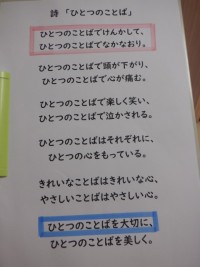 詩 「ひとつのことば」
ひとつのことばでけんかして、
ひとつのことばでなかなおり。
ひとつのことばで頭が下がり、
ひとつのことばで心が痛む。
ひとつのことばで楽しく笑い、
ひとつのことばで泣かされる。
ひとつのことばはそれぞれに、
ひとつの心をもっている。
きれいなことばはきれいな心、
やさしいことばはやさしい心。
ひとつのことばを大切に、
ひとつのことばを美しく。